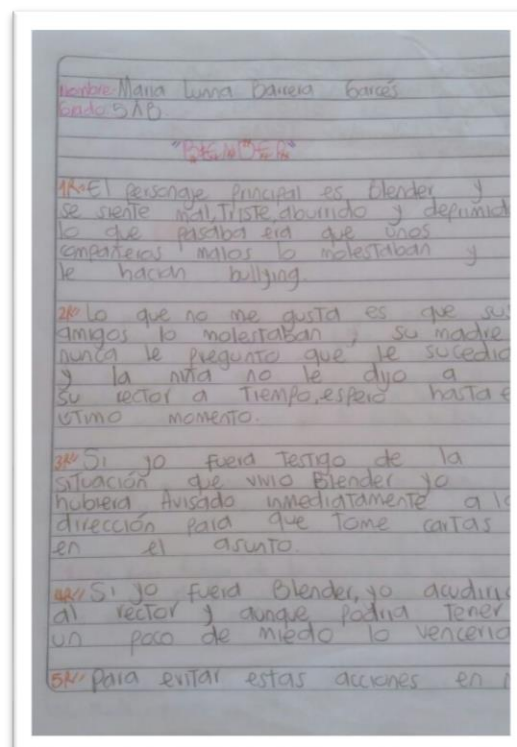 Nombre: Maria Luna Barrera Garcés
Grado: 5AB
"BENDER"
1R// El personaje principal es blender y
se siente mal, Triste, aburrido y deprimid
lo que pasaba era que unos
compañeros malos lo molestaban y
le hacian bullying.
2R// Lo que no me gusta es que sus
amigos lo molestaban, su madre
nunca le pregunto que le sucedio
y la niña no le dijo a
su rector a Tiempo, espero hasta e
UTimo momento.
3R// Si yo fuera Testigo de la
situación que vivio Blender yo
hubiera Avisado inmediatamente a la
dirección para que Tome cartas
en el asunto.
4R// Si yo fuera Blender, yo acudiria
al rector y aunque podria Tener
un poco de miedo lo venceria
5R// Para evitar estas acciones en